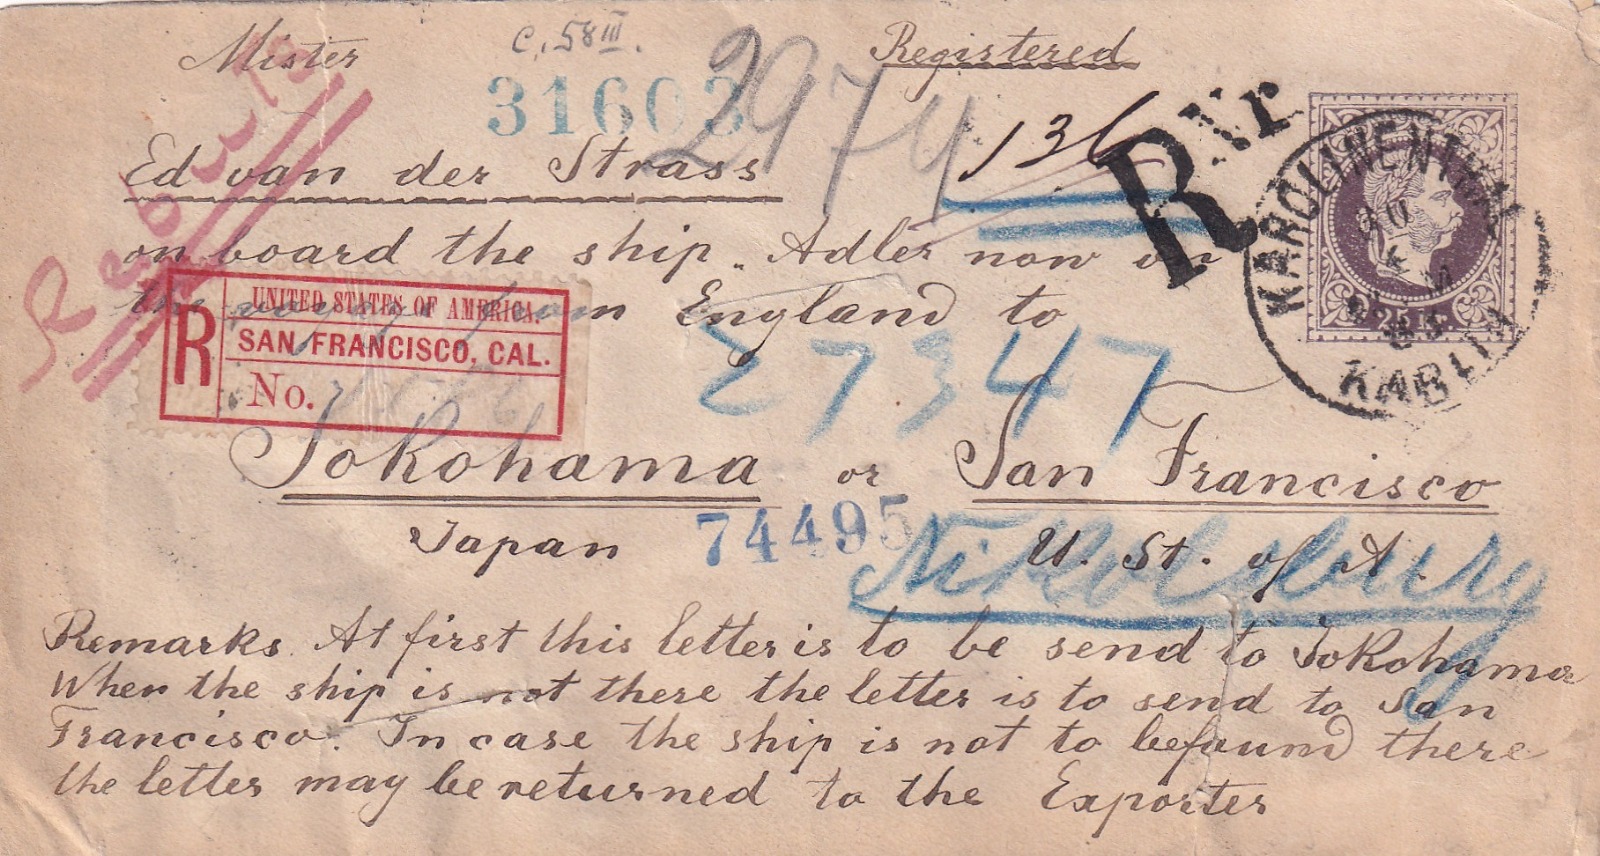 Mister
c. 58 III.
Registered
31603
2974
136
R Nr
Ed van der Strass
on board the ship "Adler now on
the voyage from England to
KAROLINENTHAL
KARLIN
25 K.
R
UNITED STATES OF AMERICA.
SAN FRANCISCO, CAL.
No.
27347
Jokohama or San Francisco
Japan
74495
U. St. of A.
Nikolsburg
Remarks. At first this letter is to be send to Jokohama
When the ship is not there the letter is to send to San
Francisco. In case the ship is not to befound there
the letter may be returned to the Exporter